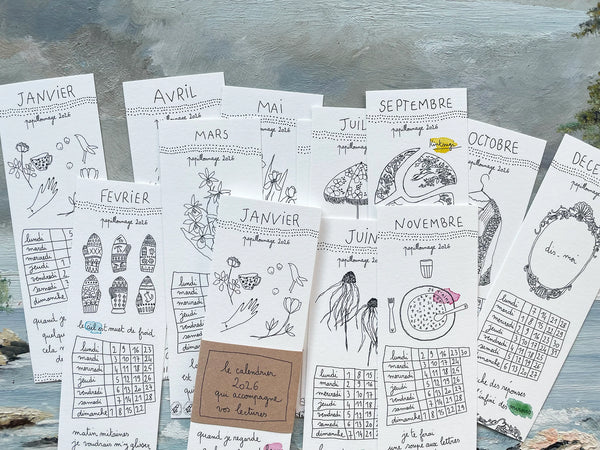 JANVIER
papillonnage 2026
lundi
mardi
mercredi
jeudi
vendredi
samedi
dimanche
quand je
quelque
cela
AVRIL
papillonnage 2026
MAI
papillonnage 2026
MARS
papillonnage 2026
lundi
mardi
mercredi
jeudi
vendredi
samedi
dimanche
JUIL
papillonnage
SEPTEMBRE
papillonnage 2026
OCTOBRE
papillonnage 2026
DECE
papillonnage
dis-moi
FEVRIER
papillonnage 2026
le ciel est muet de froid,
lundi 2 9 16 23
mardi 3 10 17 24
mercredi 4 11 18 25
jeudi 5 12 19 26
vendredi 6 13 20 27
samedi 7 14 21 28
dimanche 1 8 15 22
matin mitaines
je voudrais m'y glisser
JANVIER
papillonnage 2026
le calendrier
2026
qui accompagne
vos lectures
quand je regarde
JUIN
papillonnage
lundi 1 8 15
mardi 2 9 16
mercredi
jeudi
vendredi
samedi
dimanche
NOVEMBRE
papillonnage 2026
lundi 2 9 16 23 30
mardi 3 10 17 24
mercredi 4 11 18 25
jeudi 5 12 19 26
vendredi 6 13 20 27
samedi 7 14 21 28
dimanche 1 8 15 22 29
je te ferai
une soupe aux lettres
lundi
mardi
mercredi
jeudi
vendredi
samedi
dimanche
che des réponses
infini des miroirs